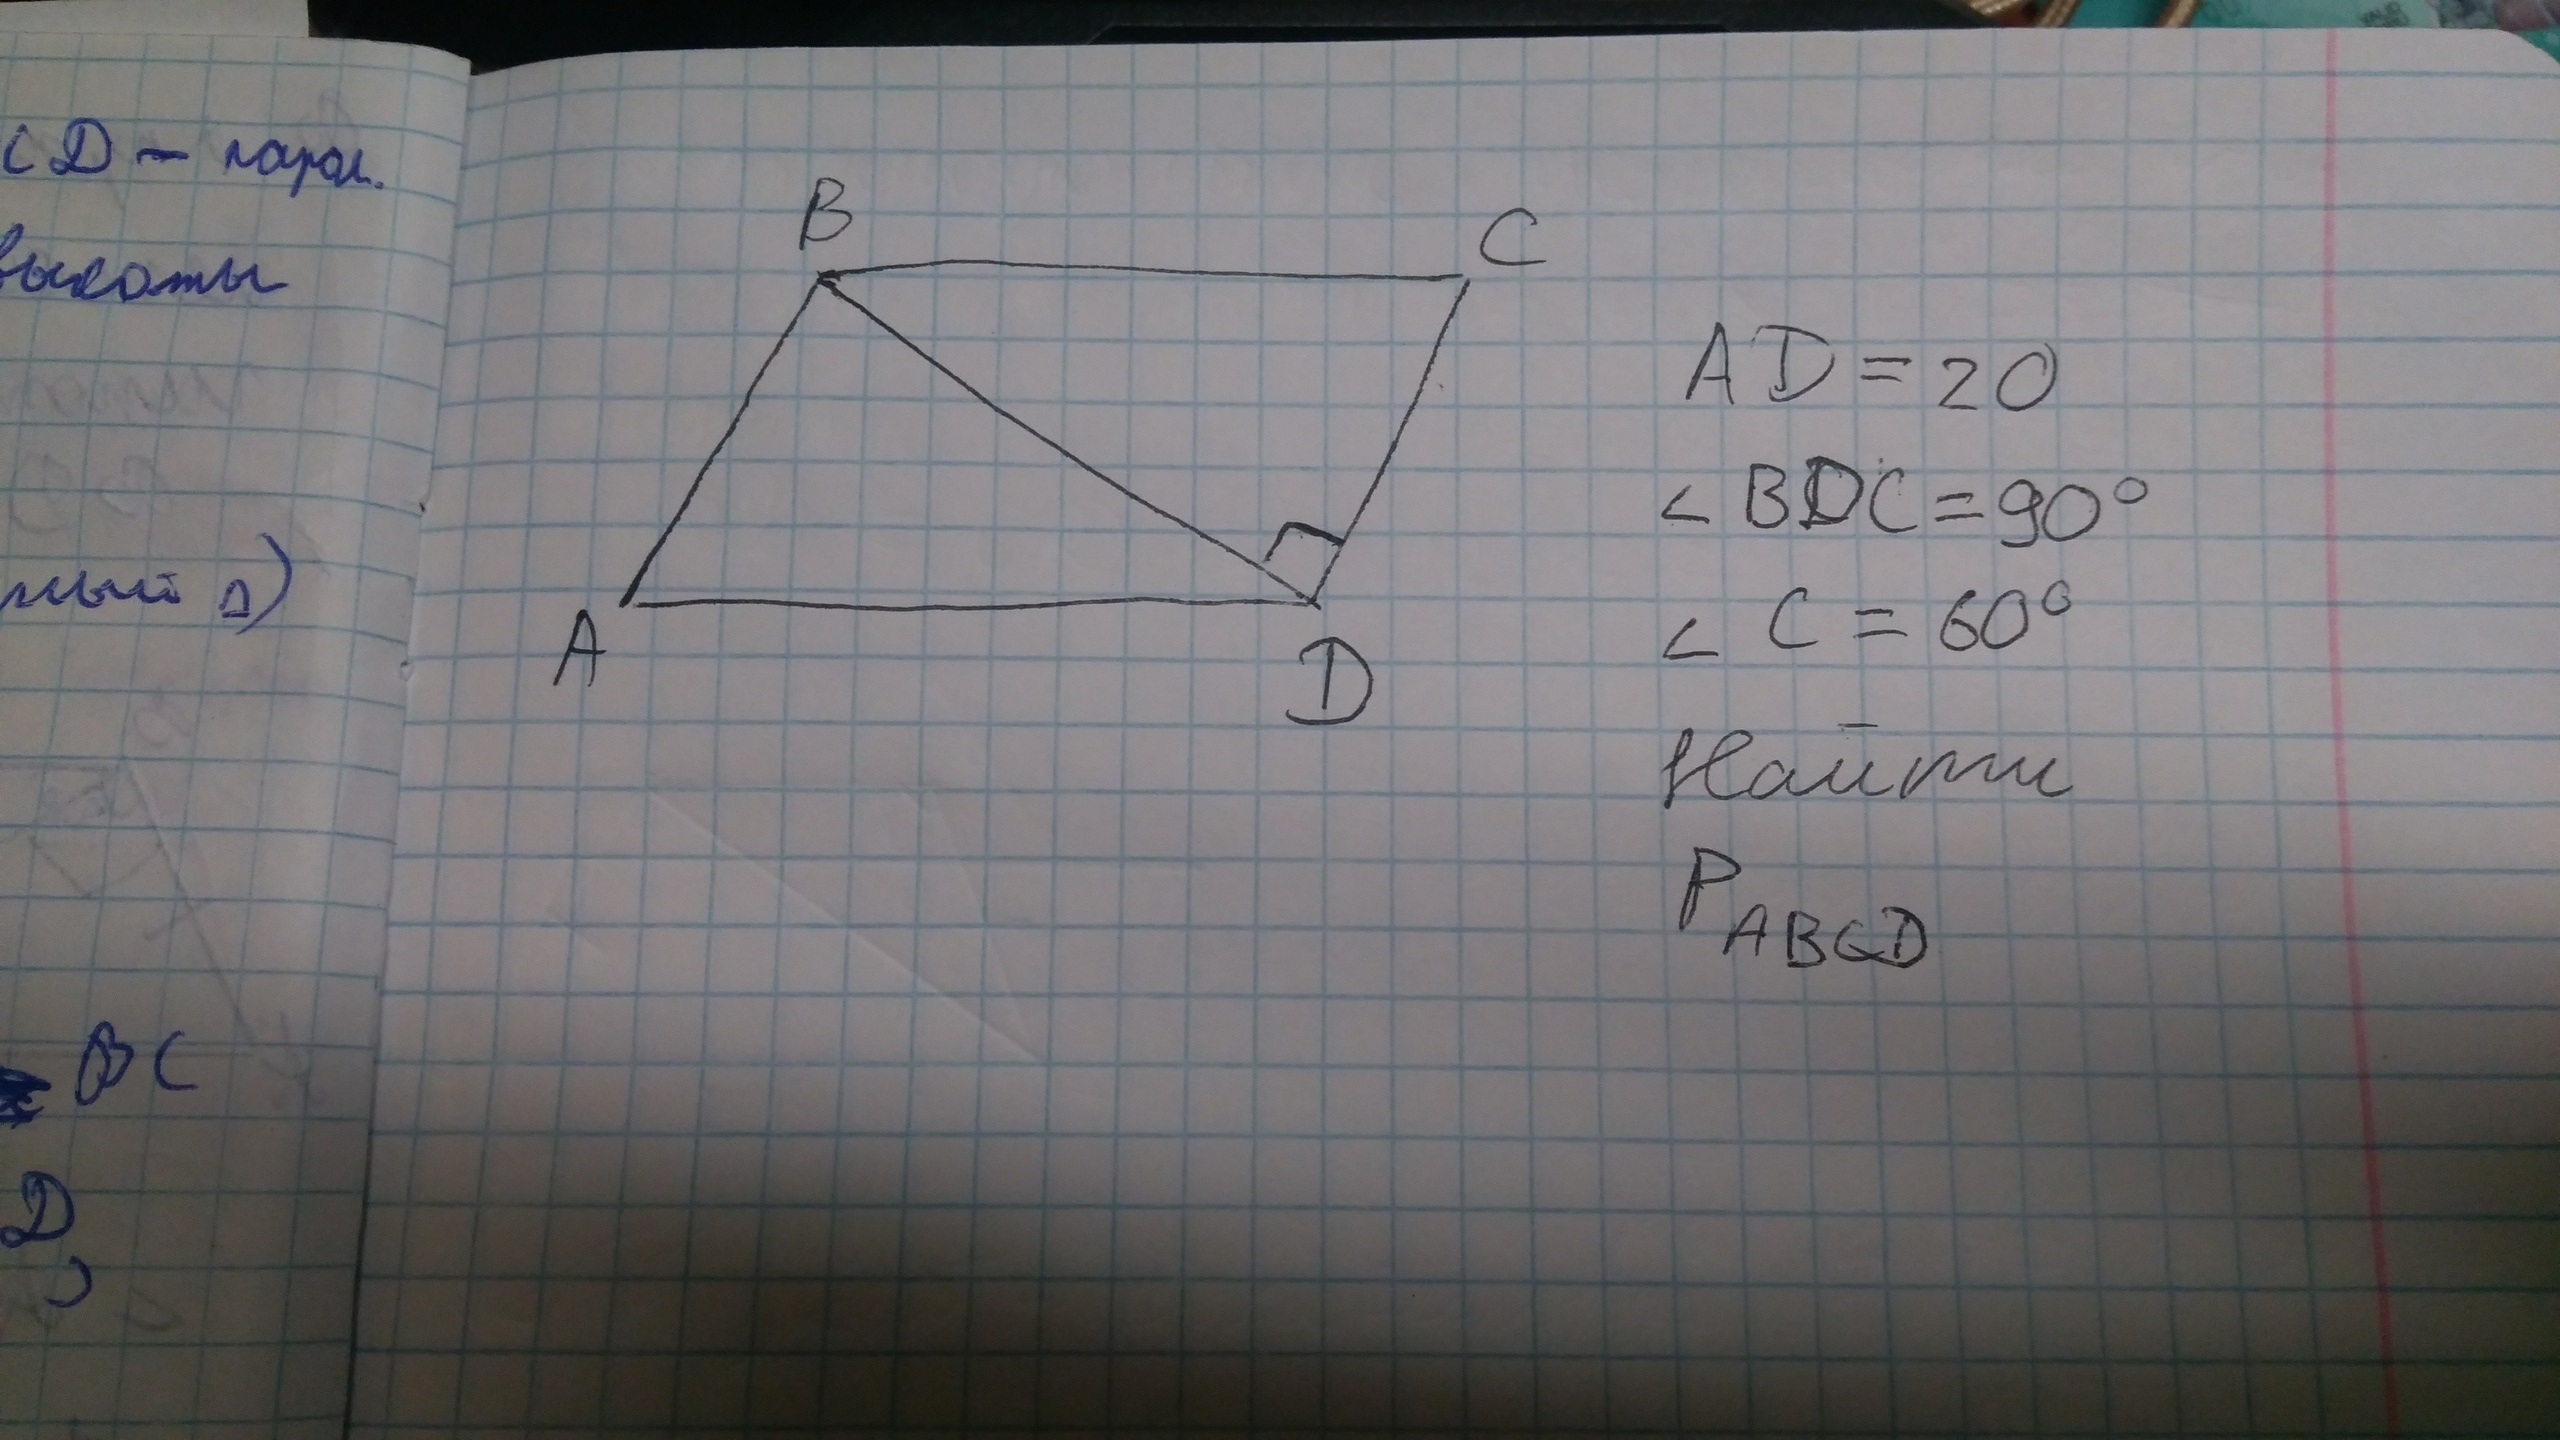 CD – парал.
высоты
BC
D
B
C
A
D
AD = 20
∠ BDC = 90°
∠ C = 60°
Найти
P ABCD